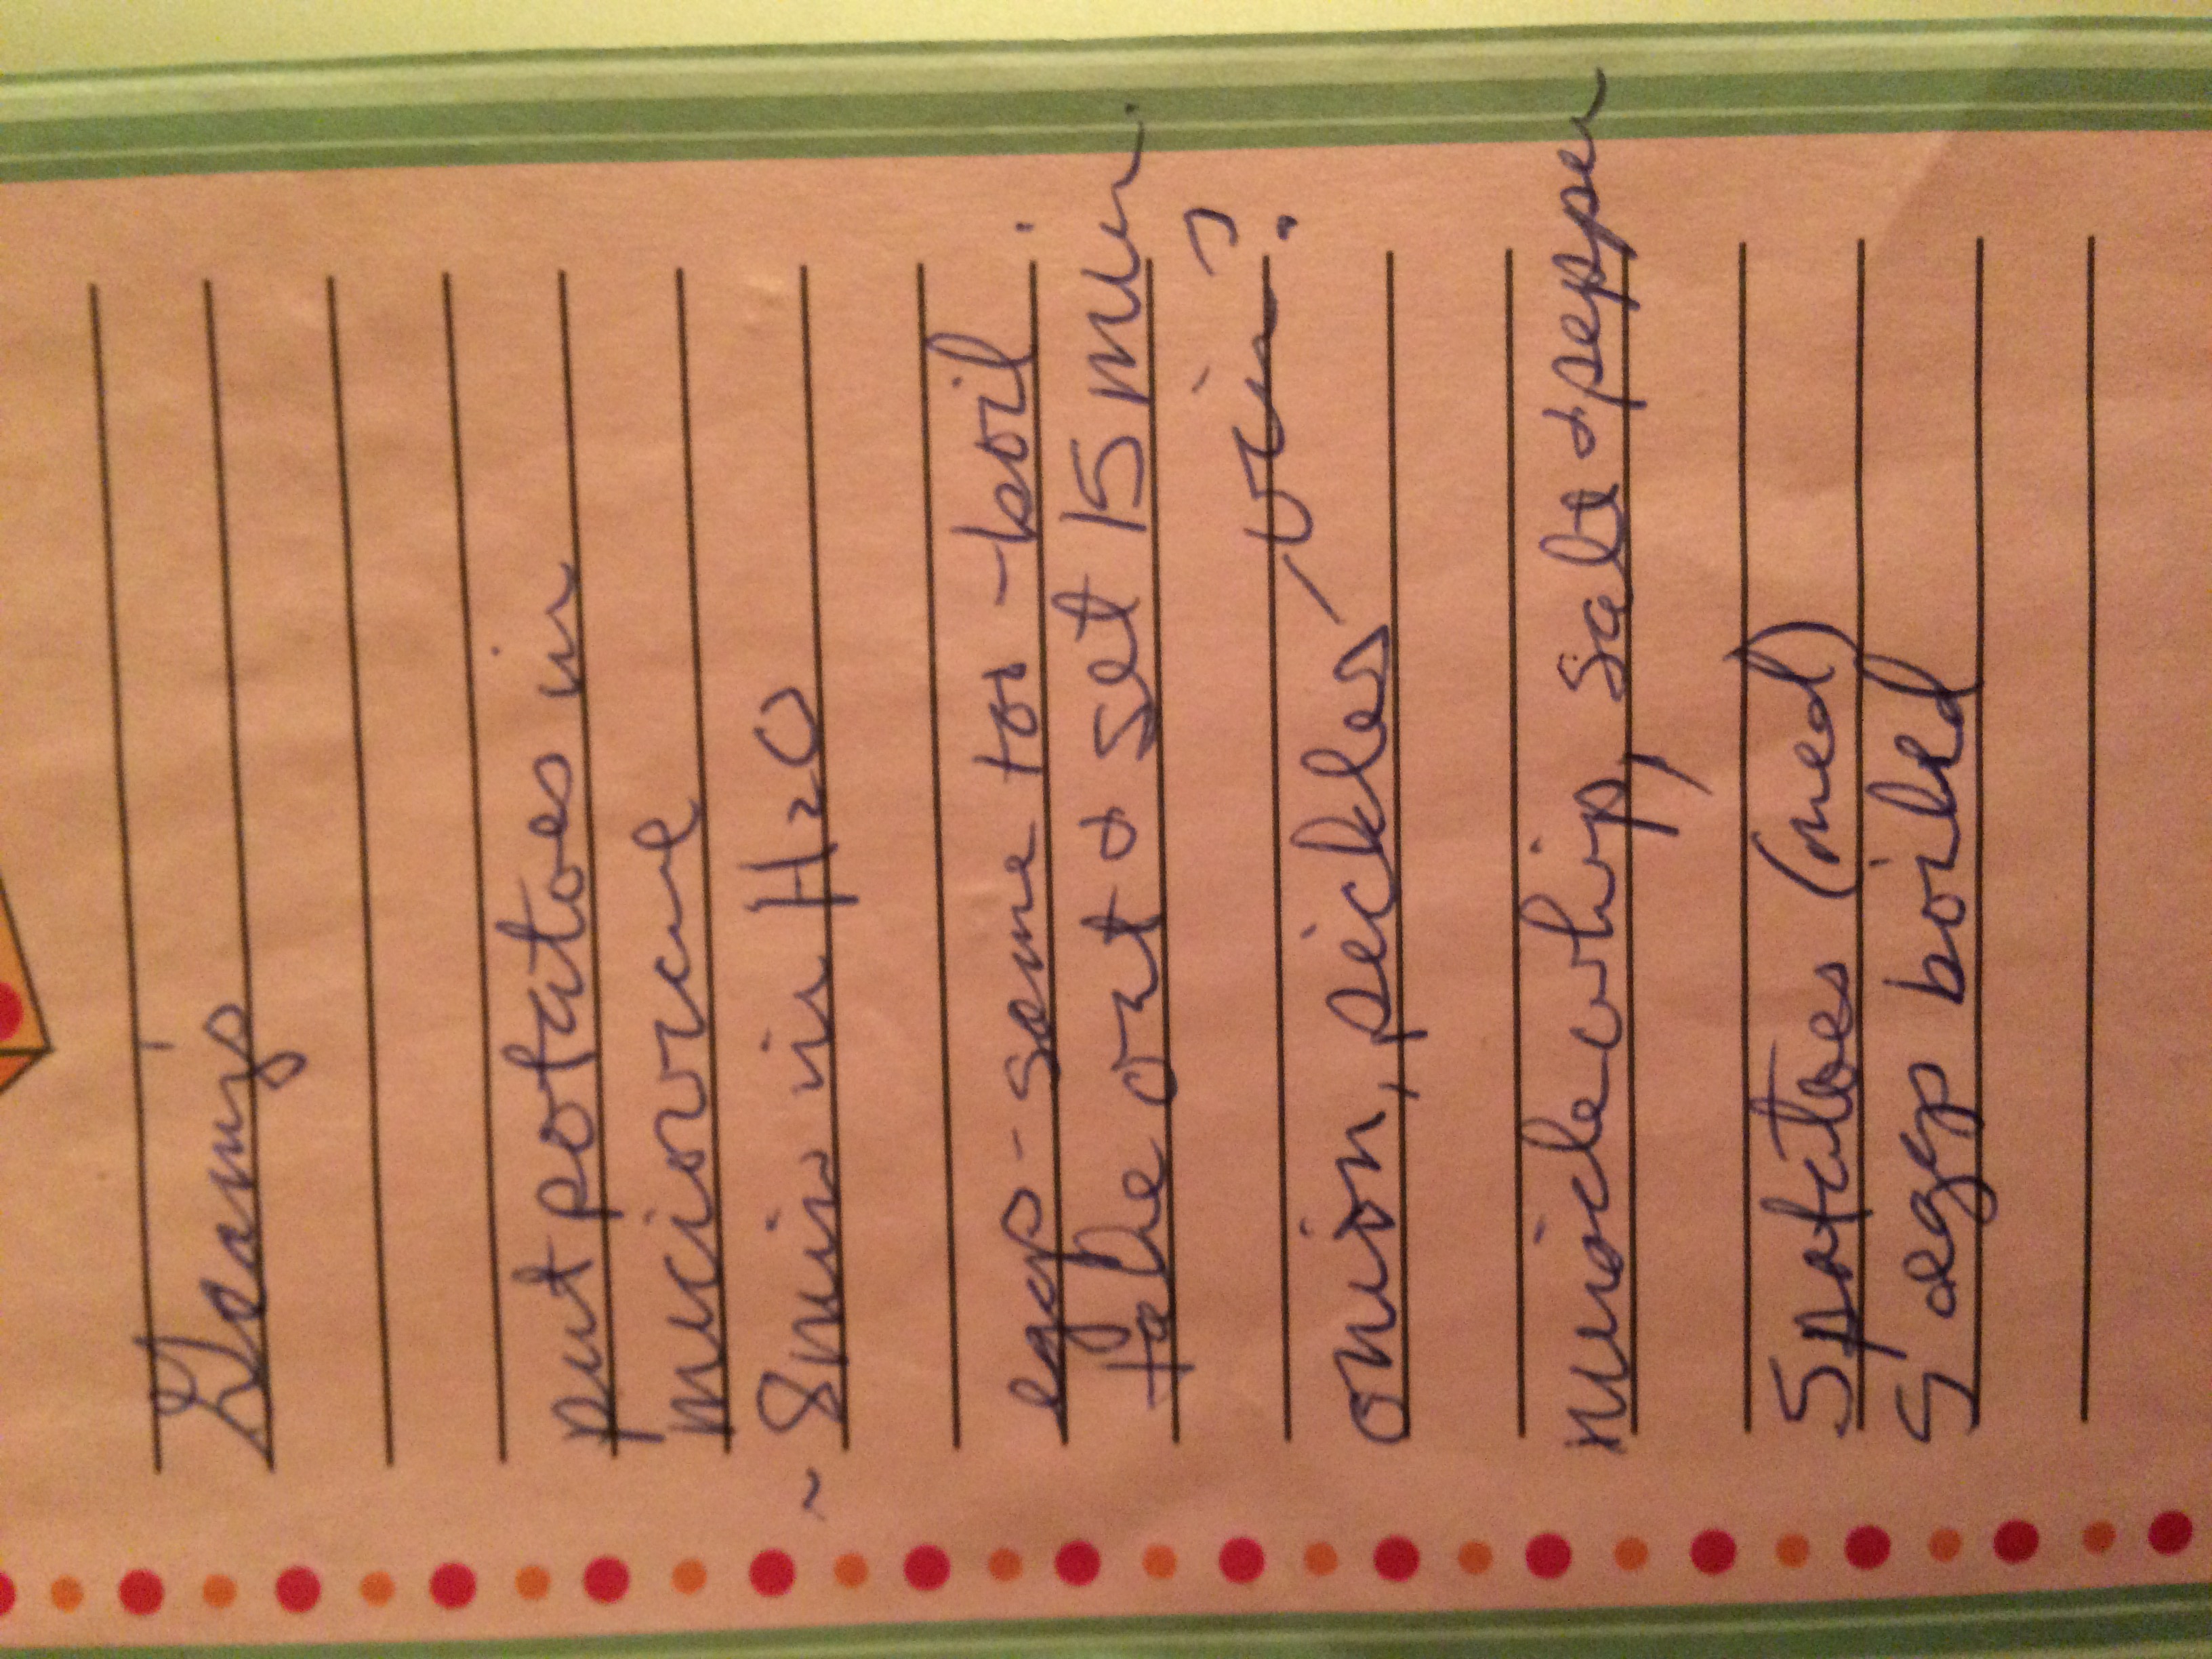 Gramy's
put potatoes in
miciowave
~ 8 min in H2O
eggs - same too - boil.
take out & set 15 min.
vin?
onion, pickles
miracle whip, salt & pepper
5 potatoes (med)
5 eggs boiled